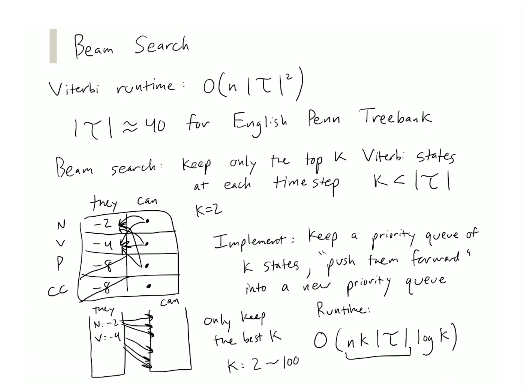 Beam Search
Viterbi runtime: O(n|τ|²)
|τ| ≈ 40 for English Penn Treebank
Beam search: Keep only the top K Viterbi states
at each timestep K < |τ|
they can
K=2
N -2
V -4
P -8
CC -8
Implement: Keep a priority queue of
K states, "push them forward"
into a new priority queue
they
can
N: -2
V: -4
only keep
the best K
K: 2 ~ 100
Runtime:
O(nk|τ| log k)